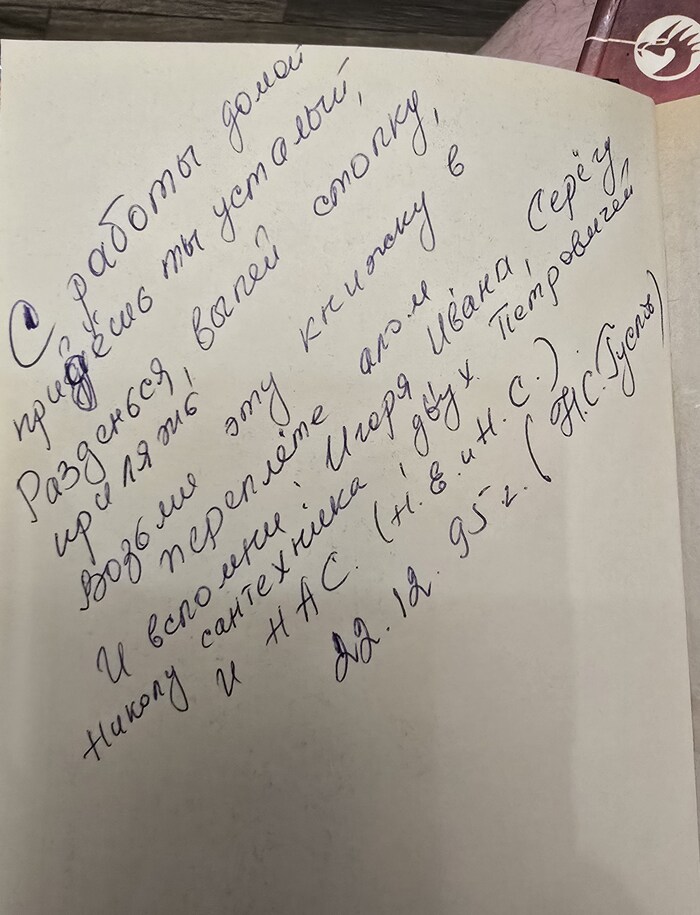 С работы домой
придёшь ты усталый,
Разденься, выпей стопку,
приляжь
Возьми эту книжку в
переплёте алом
И вспомни: Игоря, Ивана, Серёгу
Николу сантехника, двух Петровичей
и НАС. (Н.Е. и Н.С.).
22.12.95г. (Н.С.Гуспь)